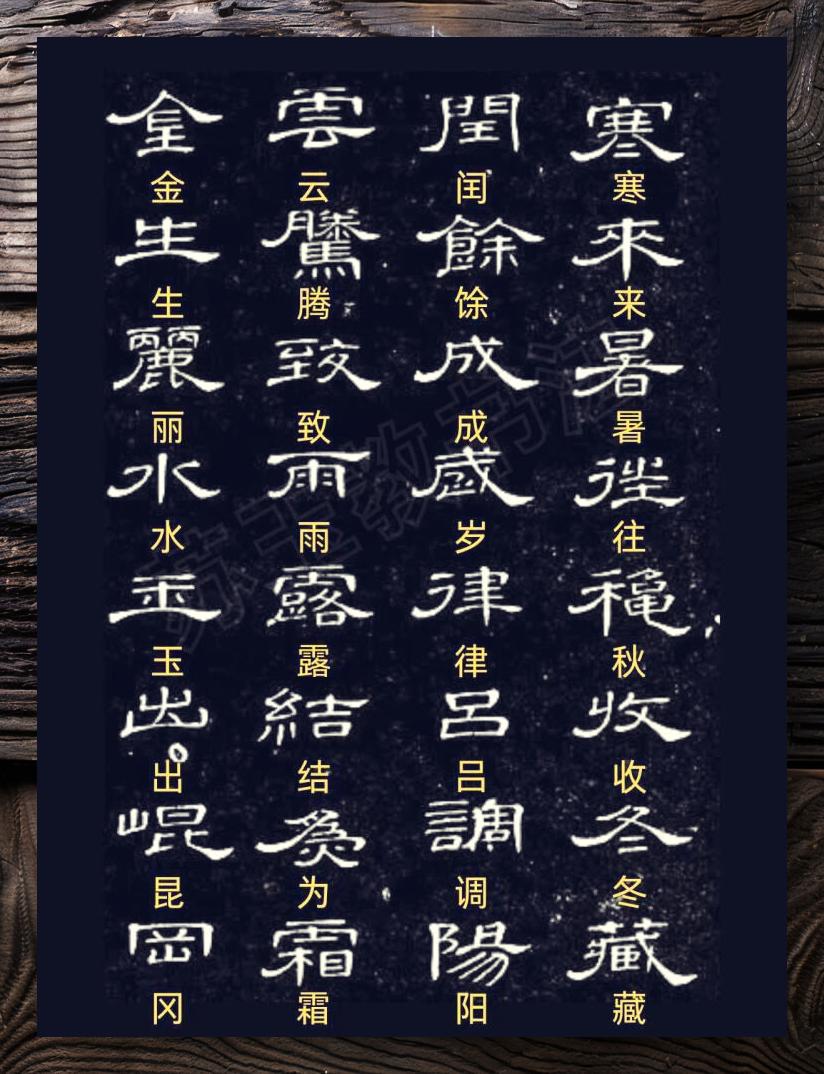 寒來暑往秋收冬藏
寒来暑往秋收冬藏
閏餘成歲律呂調陽
闰馀成岁律吕调阳
雲騰致雨露結為霜
云腾致雨露结为霜
金生麗水玉出崐岡
金生丽水玉出昆冈